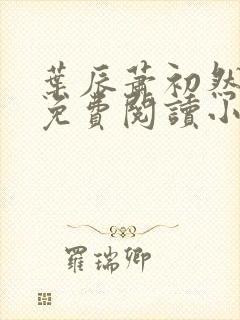 葉辰蕭初然
免費閱讀小
羅瑞卿